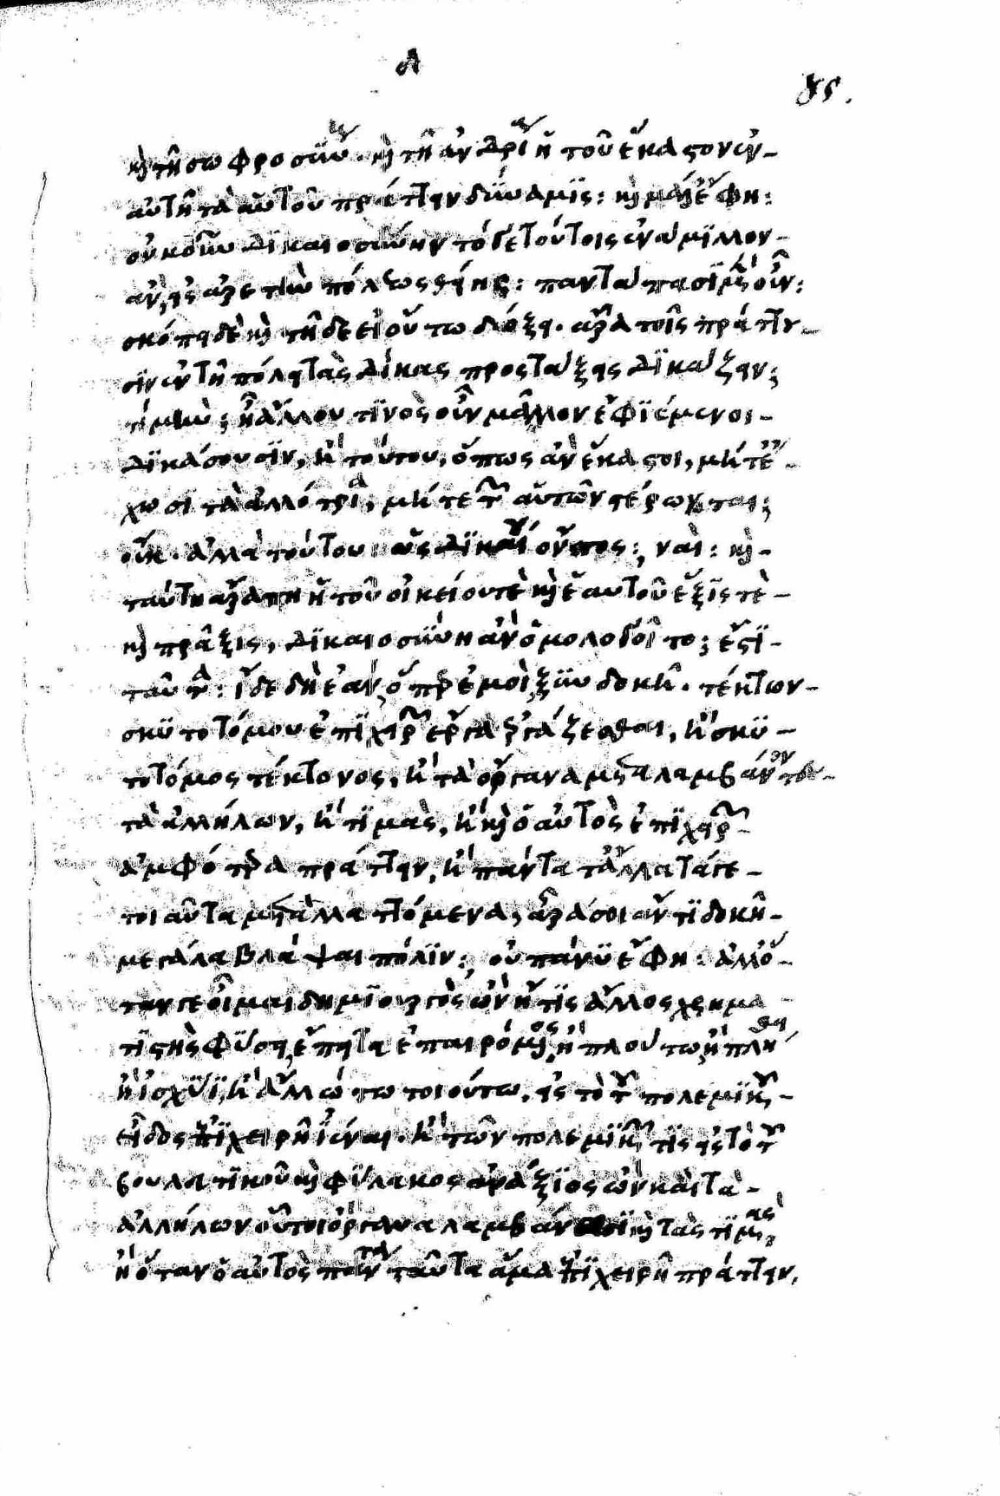 Δ
υς.
καὶ τῆ σωφροσύνη. καὶ τῆ ἀνδρία ἡ τοῦ ἕκαστον ἐν
αὐτῆ τὰ αὑτοῦ πράττειν δύναμις: καὶ μάλ' ἔφη:
οὐκοῦν δικαιοσύνην τό γε τούτοις ἐνάμιλλον
ἂν εἰς ἀρετὴν πόλεως θείης: παντάπασι μὲν οὖν:
σκόπει δὲ καὶ τῆδε εἰ οὕτω δόξει. ἆρα τοῖς ἄρχου
σιν ἐν τῆ πόλει τὰς δίκας προστάξεις δικάζειν;
τί μήν; ἢ ἄλλου τινὸς οὖν μᾶλλον ἐφιέμενοι
δικάσουσιν, ἢ τούτου, ὅπως ἂν ἕκαστοι, μήτ' ἔ
χωσι τὰ ἀλλότρια, μήτε τῶν αὑτῶν στέρωνται;
οὐκ. ἀλλὰ τούτου: ὡς δικαίου ὄντος; ναὶ: καὶ
ταύτη ἄρα πη ἡ τοῦ οἰκείου τὲ καὶ ἑαυτοῦ ἕξις τὲ
καὶ πρᾶξις, δικαιοσύνη ἂν ὁμολογοῖτο; ἔστι
ταῦτα: ἴδε δὴ ἐὰν σοὶ ὅπερ ἐμοὶ ξυνδοκῆ. τέκτων
σκυτοτόμου ἐπιχειρῶν ἔργα ἐργάζεσθαι, ἢ σκυ
τοτόμος τέκτονος, ἢ τὰ ὄργανα μεταλαμβάνοντες
τὰ ἀλλήλων, ἢ τιμὰς, ἢ καὶ ὁ αὐτὸς ἐπιχειρῶν
ἀμφότερα πράττειν, ἢ πάντα τἄλλα τά γε
τοιαῦτα μεταλλαττόμενα, ἆρά σοι ἄν τι δοκῆ
μεγάλα βλάψαι πόλιν; οὐ πάνυ ἔφη: ἀλλ' ὅ
ταν γε οἶμαι δημιουργὸς ὢν ἤ τις ἄλλος χρημα
τιστὴς φύσει, ἔπειτα ἐπαιρόμενος, ἢ πλούτω, ἢ πλήθει
ἢ ἰσχύϊ, ἢ ἄλλω τω τοιούτω, εἰς τὸ τοῦ πολεμικοῦ
εἶδος ἐπιχειρῆ ἰέναι. ἢ τῶν πολεμικῶν τὶς εἰς τὸ τοῦ
βουλευτικοῦ καὶ φύλακος ἀνάξιος ὢν καὶ τὰ
ἀλλήλων οὗτοι ὄργανα λαμβάνωσι καὶ τὰς τιμὰς,
ἢ ὅταν ὁ αὐτὸς πάντα ταῦτα ἅμα ἐπιχειρῆ πράττειν,